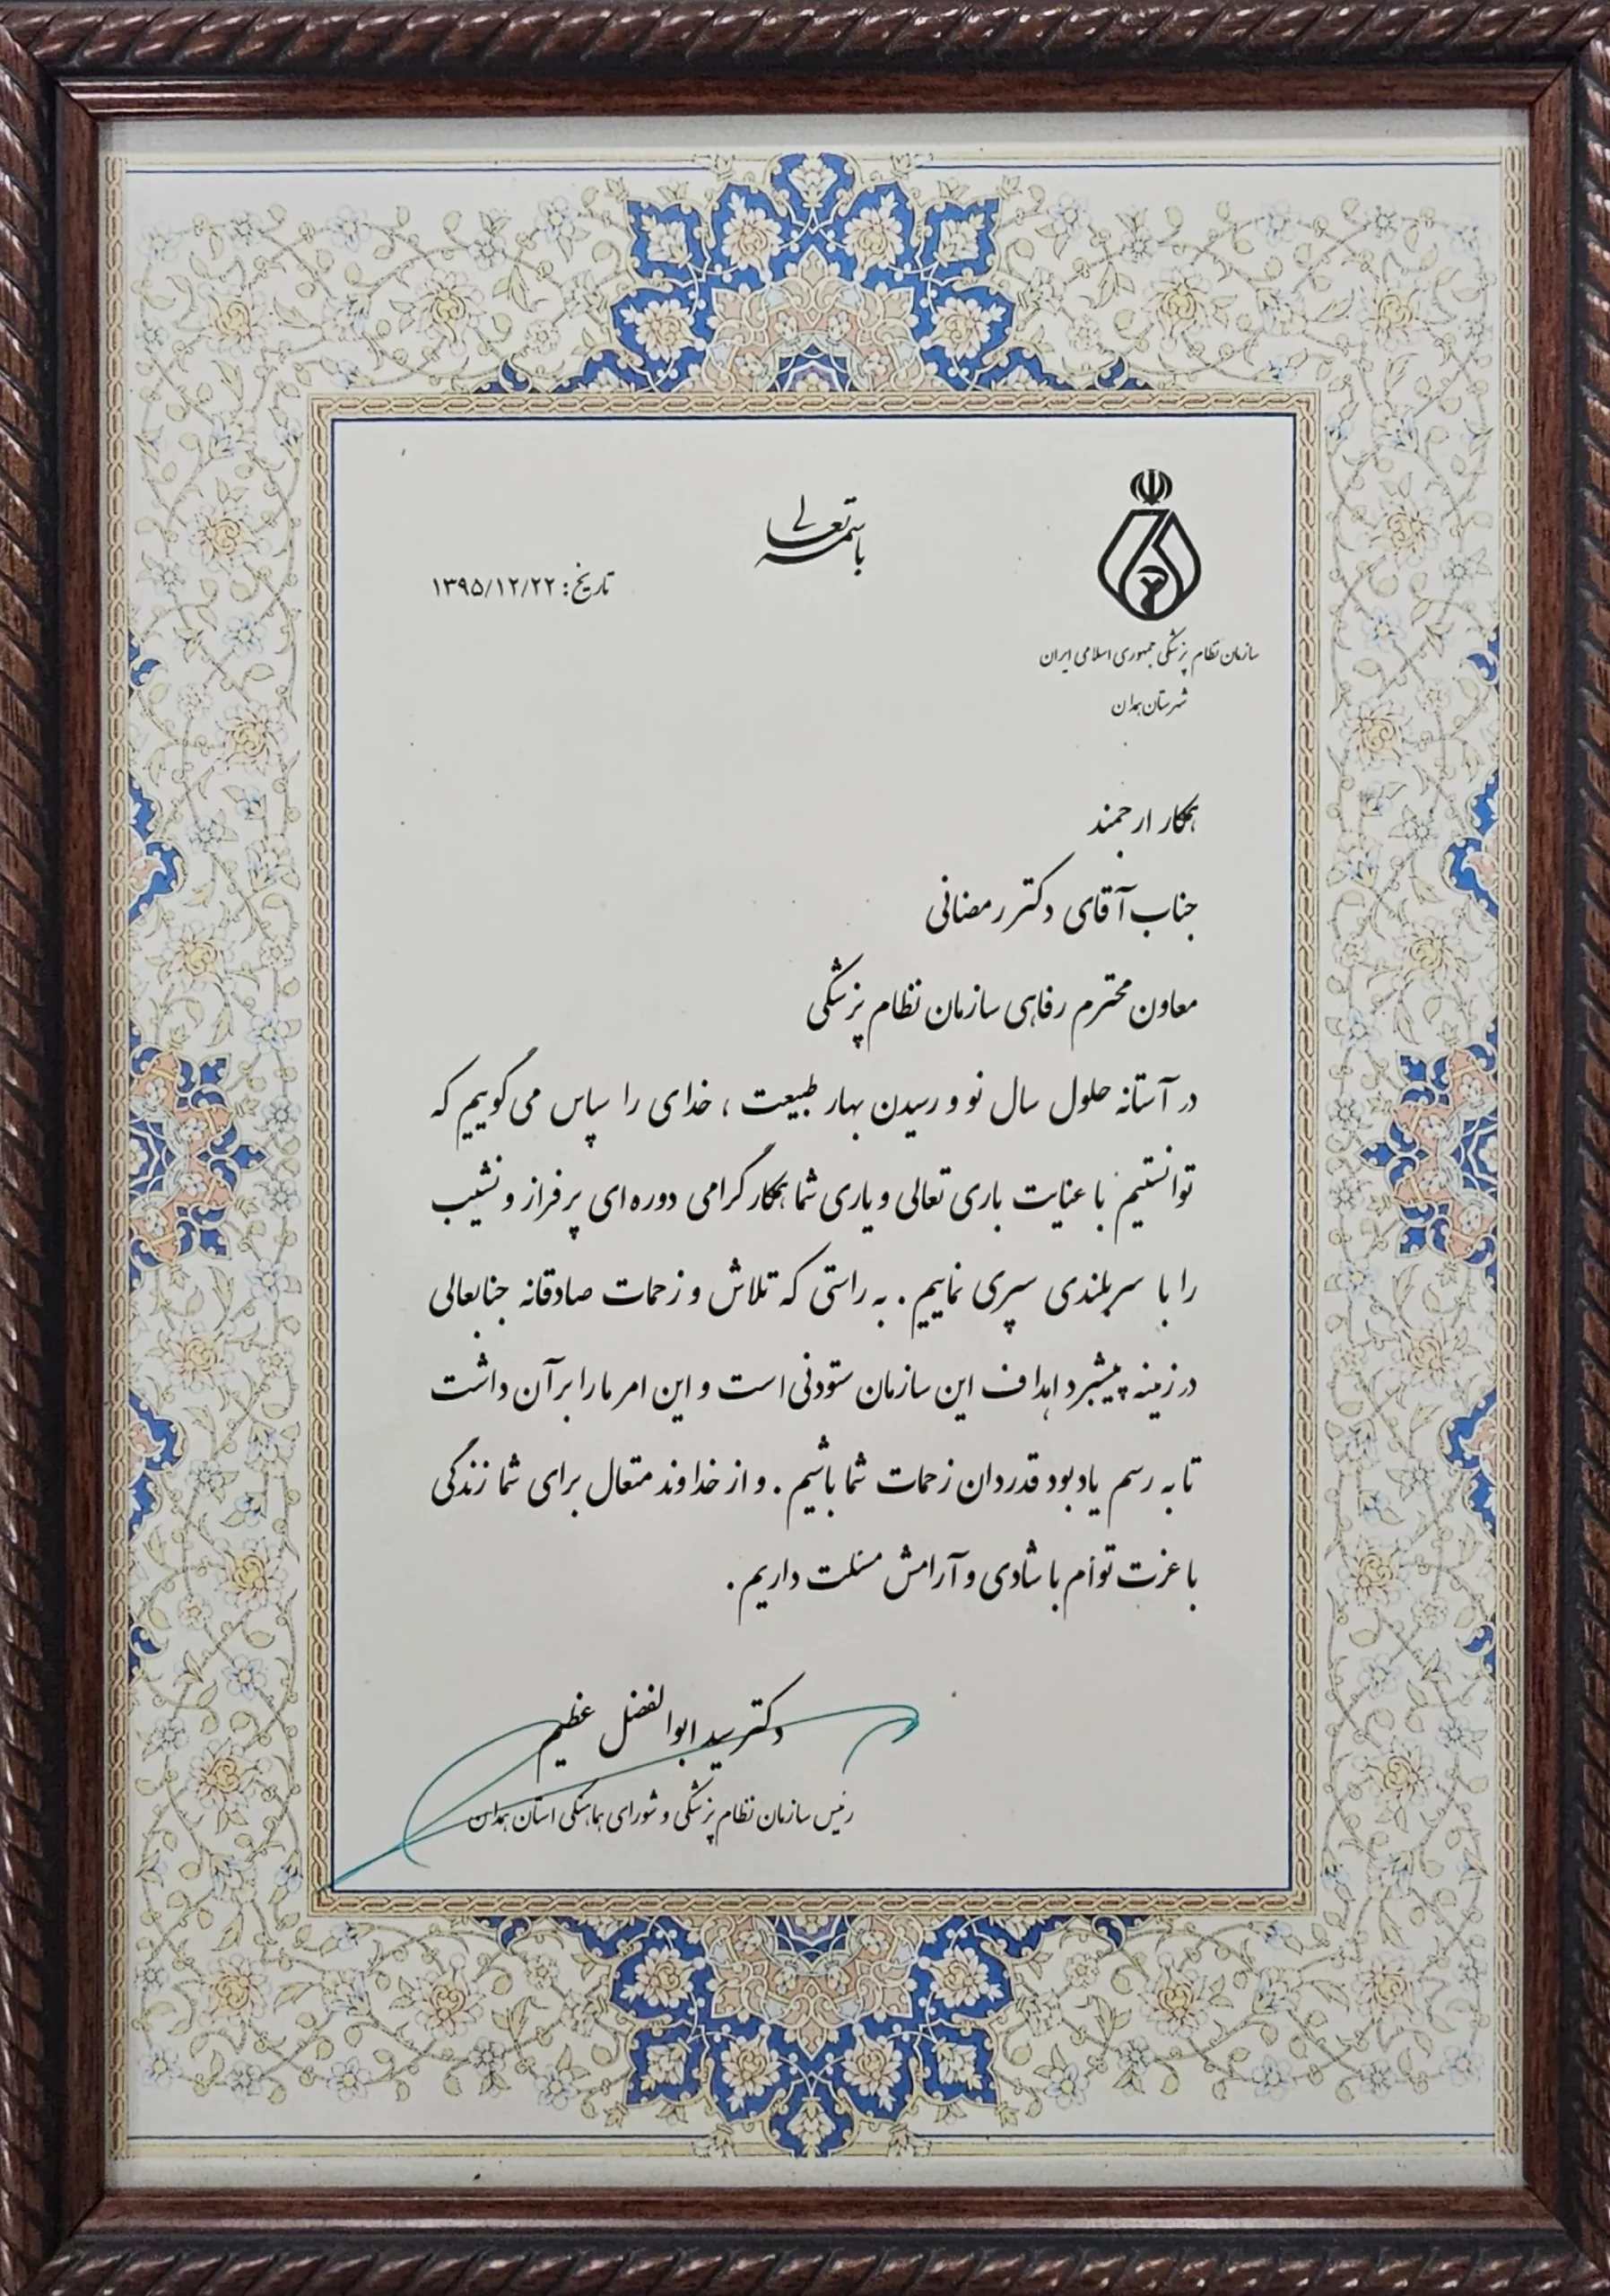 باسمه تعالی
تاریخ: ۱۳۹۵/۱۲/۲۲
سازمان نظام پزشکی جمهوری اسلامی ایران
شهرستان همدان
همکار ارجمند
جناب آقای دکتر رمضانی
معاون محترم رفاهی سازمان نظام پزشکی
در آستانه حلول سال نو و رسیدن بهار طبیعت ، خدای را سپاس می گوییم که
توانستیم با عنایت باری تعالی و یاری شما همکار گرامی دوره ای پر فراز و نشیب
را با سربلندی سپری نماییم . به راستی که تلاش و زحمات صادقانه جنابعالی
در زمینه پیشبرد اهداف این سازمان ستودنی است و این امر ما را بر آن داشت
تا به رسم یادبود قدردان زحمات شما باشیم . و از خداوند متعال برای شما زندگی
با عزت توأم با شادی و آرامش مسئلت داریم .
دکتر سید ابوالفضل عظیم
رئیس سازمان نظام پزشکی و شورای هماهنگی استان همدان